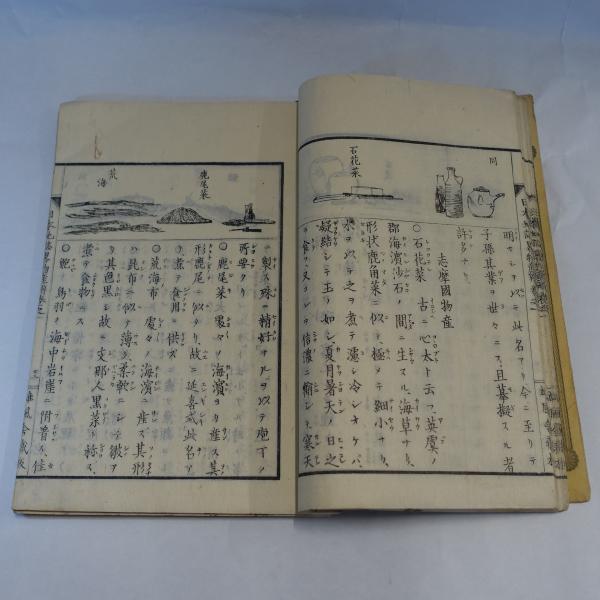 同
石花菜
明ラシヲ以テ此名アリ今ニ至リテ
子孫其業ヲ世々ニス且摹擬スル者
許多ナリ
志摩國物産
○石花菜 古ニ心太ト云フ英虞ノ
郡海濱沙石ノ間ニ生スル海草ナリ
形状鹿角菜ニ似テ極メテ細小ナリ
水ヲ以テ之ヲ煮テ濾シ冷シオケバ
凝結シテ玉ノ如シ夏月暑天ノ日之
ヲ食フ又コレヲ信濃ニ輸シテ寒天
ニ製ス殊ニ精好ナルヲ以テ庖丁ノ
所要タリ
鹿尾菜
荒海布
○鹿尾菜 處々ノ海濱ニ産ス其
形鹿尾ニ似タリ故ニ延喜式此名ア
リ煮テ食用ニ供ス
○荒海布 處々ノ海濱ニ産ス其形
ハ昆布ニ似テ薄ク柔軟ニシテ皺ア
リ其色黒シ故ニ支那人黒菜ト称ス
煮テ食物ニス
○鮑 鳥羽ノ海中岩崖ニ附着ス佳